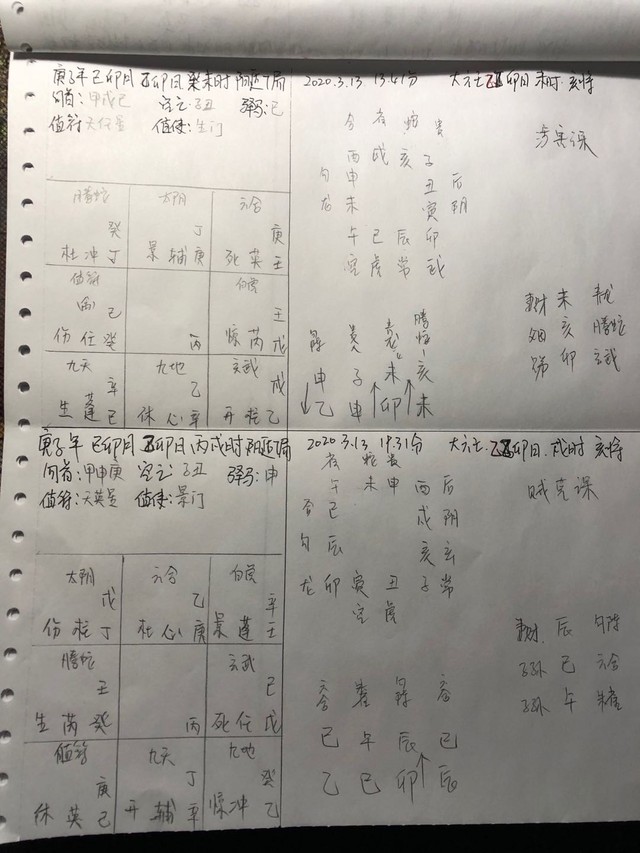 庚子年 己卯月 乙卯日 癸未时 阳遁7局
旬首:甲戌己 空亡:子丑 驿马:巳
值符:天任星 值使:生门
螣蛇 太阴 六合
癸 丁 庚
杜 冲 丁 景 辅 庚 死 英 壬
值符 白虎
己 壬
伤 任 癸 丙 惊 芮 戊
九天 九地 玄武
辛 乙 戊
生 蓬 己 休 心 辛 开 柱 乙
2020.3.13 13:41分 大六壬 乙卯日 未时 亥将
合 朱 蛇 贵
酉 戌 亥 子
勾 申 丑 后
龙 未 寅 阴
午 巳 辰 卯
空 虎 常 玄
申 子 未 亥
乙 申 卯 未
妻财 未 青龙
亥 螣蛇
卯 玄武
庚子年 己卯月 乙卯日 丙戌时 阳遁7局
旬首:甲申庚 空亡:子丑 驿马:申
值符:天英星 值使:景门
太阴 六合 白虎
戊 乙 辛
伤 柱 丁 杜 心 庚 景 蓬 壬
螣蛇 玄武
壬 己
生 芮 癸 丙 死 任 戊
值符 九天 九地
庚 丁 癸
休 英 己 开 辅 辛 惊 冲 乙
2020.3.13 19:31分 大六壬 乙卯日 戌时 亥将
贼克课
朱 蛇 贵
午 未 申 酉 后
合 巳 戌 阴
勾 辰 亥 玄
龙 卯 寅 丑 子 常
空 虎
巳 午 辰 巳
乙 巳 卯 辰
妻财 辰 勾陈
子孙 巳 六合
子孙 午 朱雀